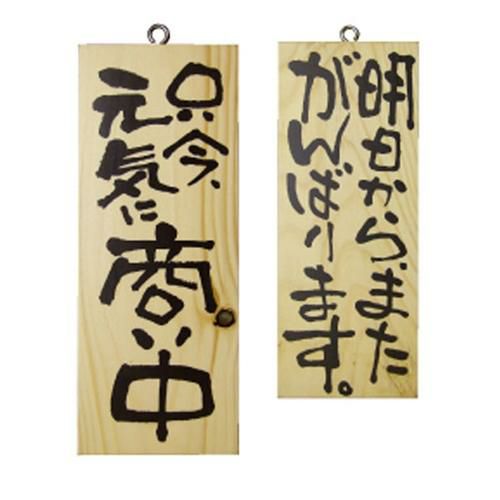 只今、
元気に
商い中
明日から、また
がんばります。